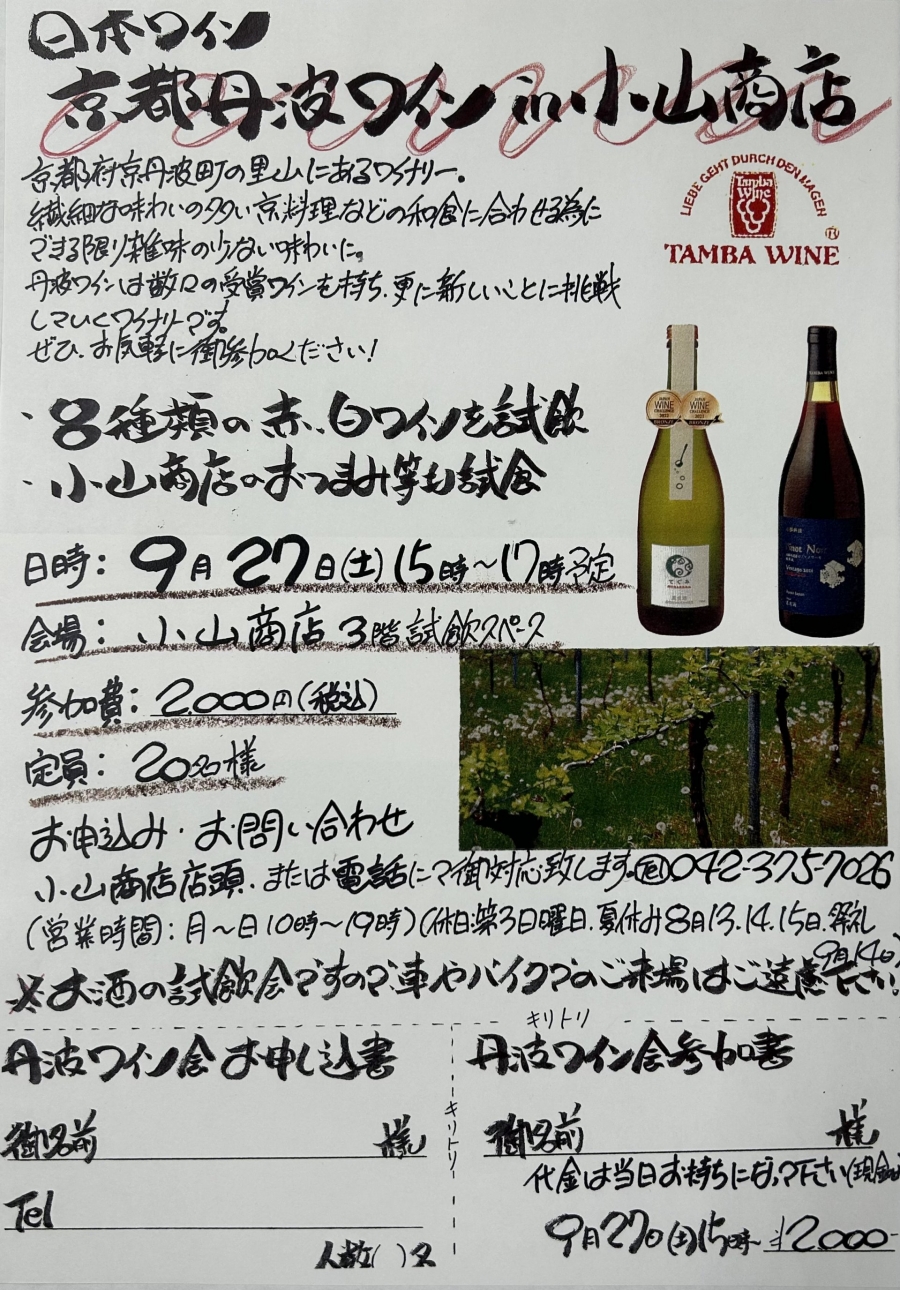 日本ワイン
京都丹波ワイン in 小山商店
京都府京丹波町の里山にあるワイナリー。
繊細な味わいの多い京料理などの和食に合わせる為に
できる限り雑味の少ない味わいに。
丹波ワインは数々の受賞ワインを持ち、更に新しいことに挑戦
していくワイナリーです。
ぜひ、お気軽に御参加ください!
LIEBE GEHT DURCH DEN MAGEN
Tamba Wine
TAMBA WINE
・8種類の赤、白ワインを試飲
・小山商店のおつまみ等も試食
日時: 9月27日(土)15時〜17時予定
会場: 小山商店3階試飲スペース
参加費: 2.000円(税込)
定員: 20名様
JAPAN WINE CHALLENGE
JAPAN WINE CHALLENGE
てぐみ
TAMBA WINE
Pinot Noir
お申込み・お問い合わせ
小山商店店頭、または電話にて御対応致します。Tel 042-375-7026
(営業時間: 月〜日10時〜19時)(休日:第3日曜日、夏休み8月13.14.15日、祭礼
9月14日)
※お酒の試飲会ですので、車やバイクでのご来場はご遠慮下さい!
キリトリ
丹波ワイン会お申し込書
御名前 様
Tel
人数( )名
キリトリ
丹波ワイン会参加書
御名前 様
代金は当日お持ちになって下さい(現金のみ
9月27日(土)15時〜 ¥2.000-